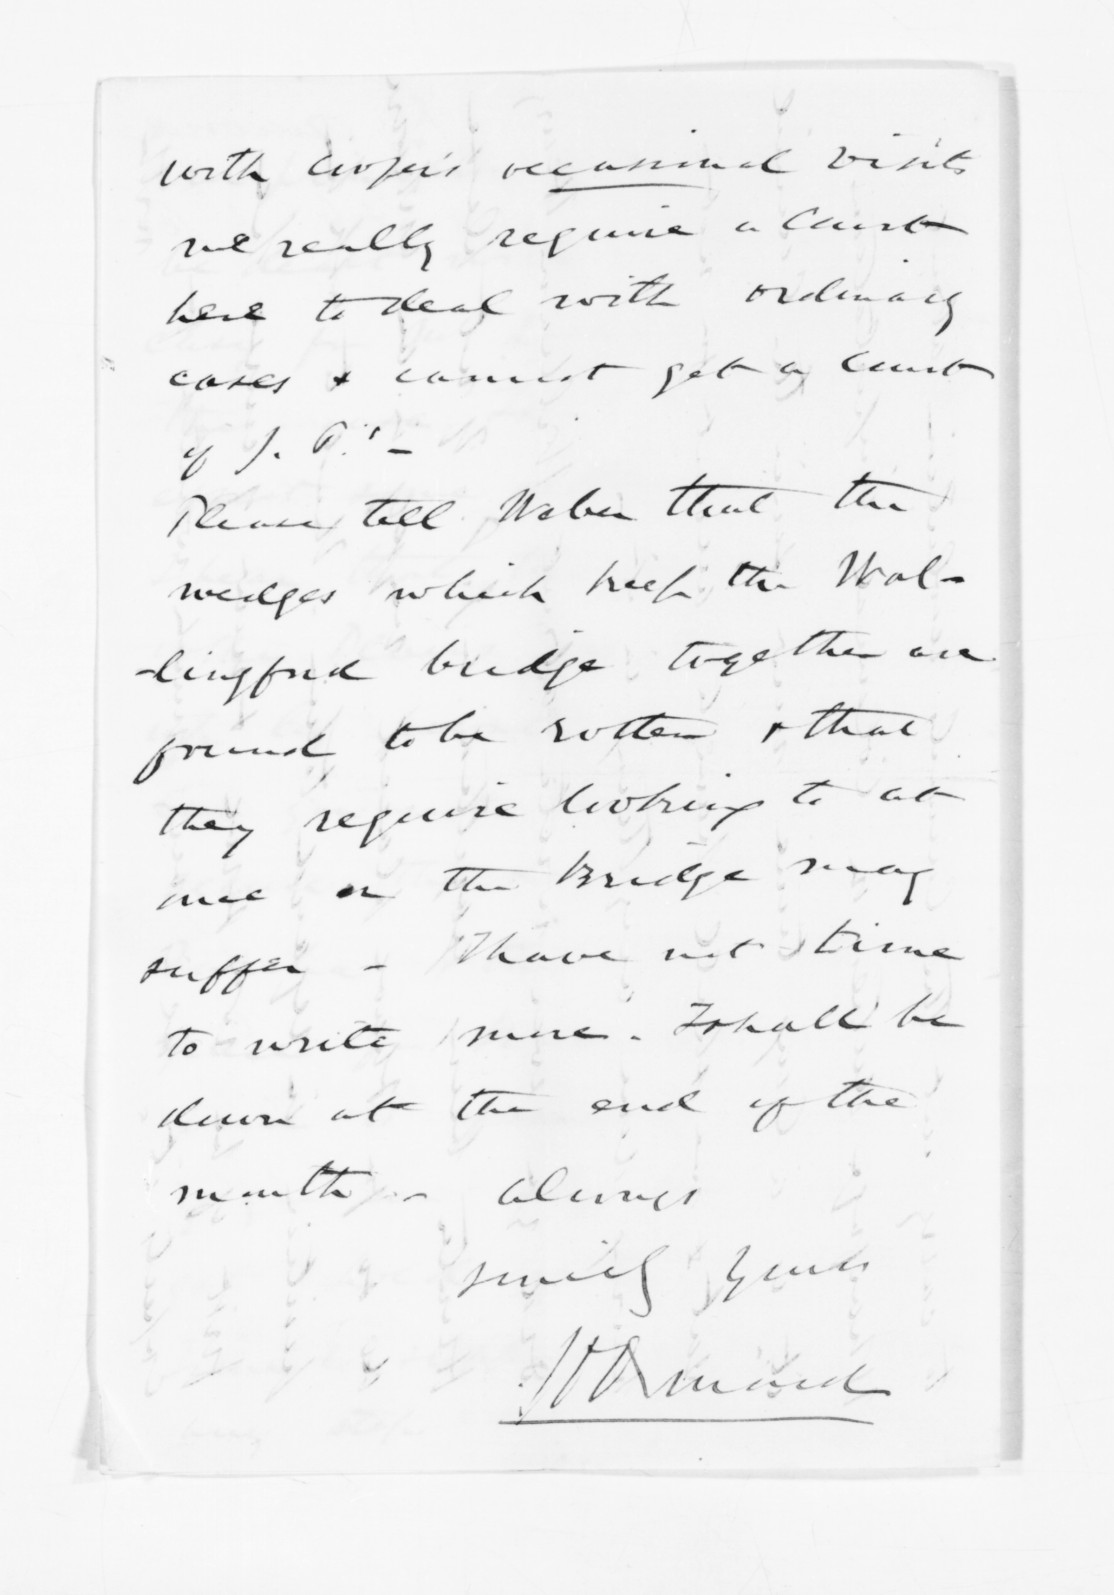 with Cooper's occasional visits
we really require a Court
here to deal with ordinary
cases & cannot get a Court
of J. P.'s -
Please tell Weber that the
wedges which keep the Wal-
-lingford bridge together are
found to be rotten & that
they require looking to at
once or the Bridge may
suffer - I have not time
to write more. I shall be
down at the end of the
month - always
sincly yours
Ormond